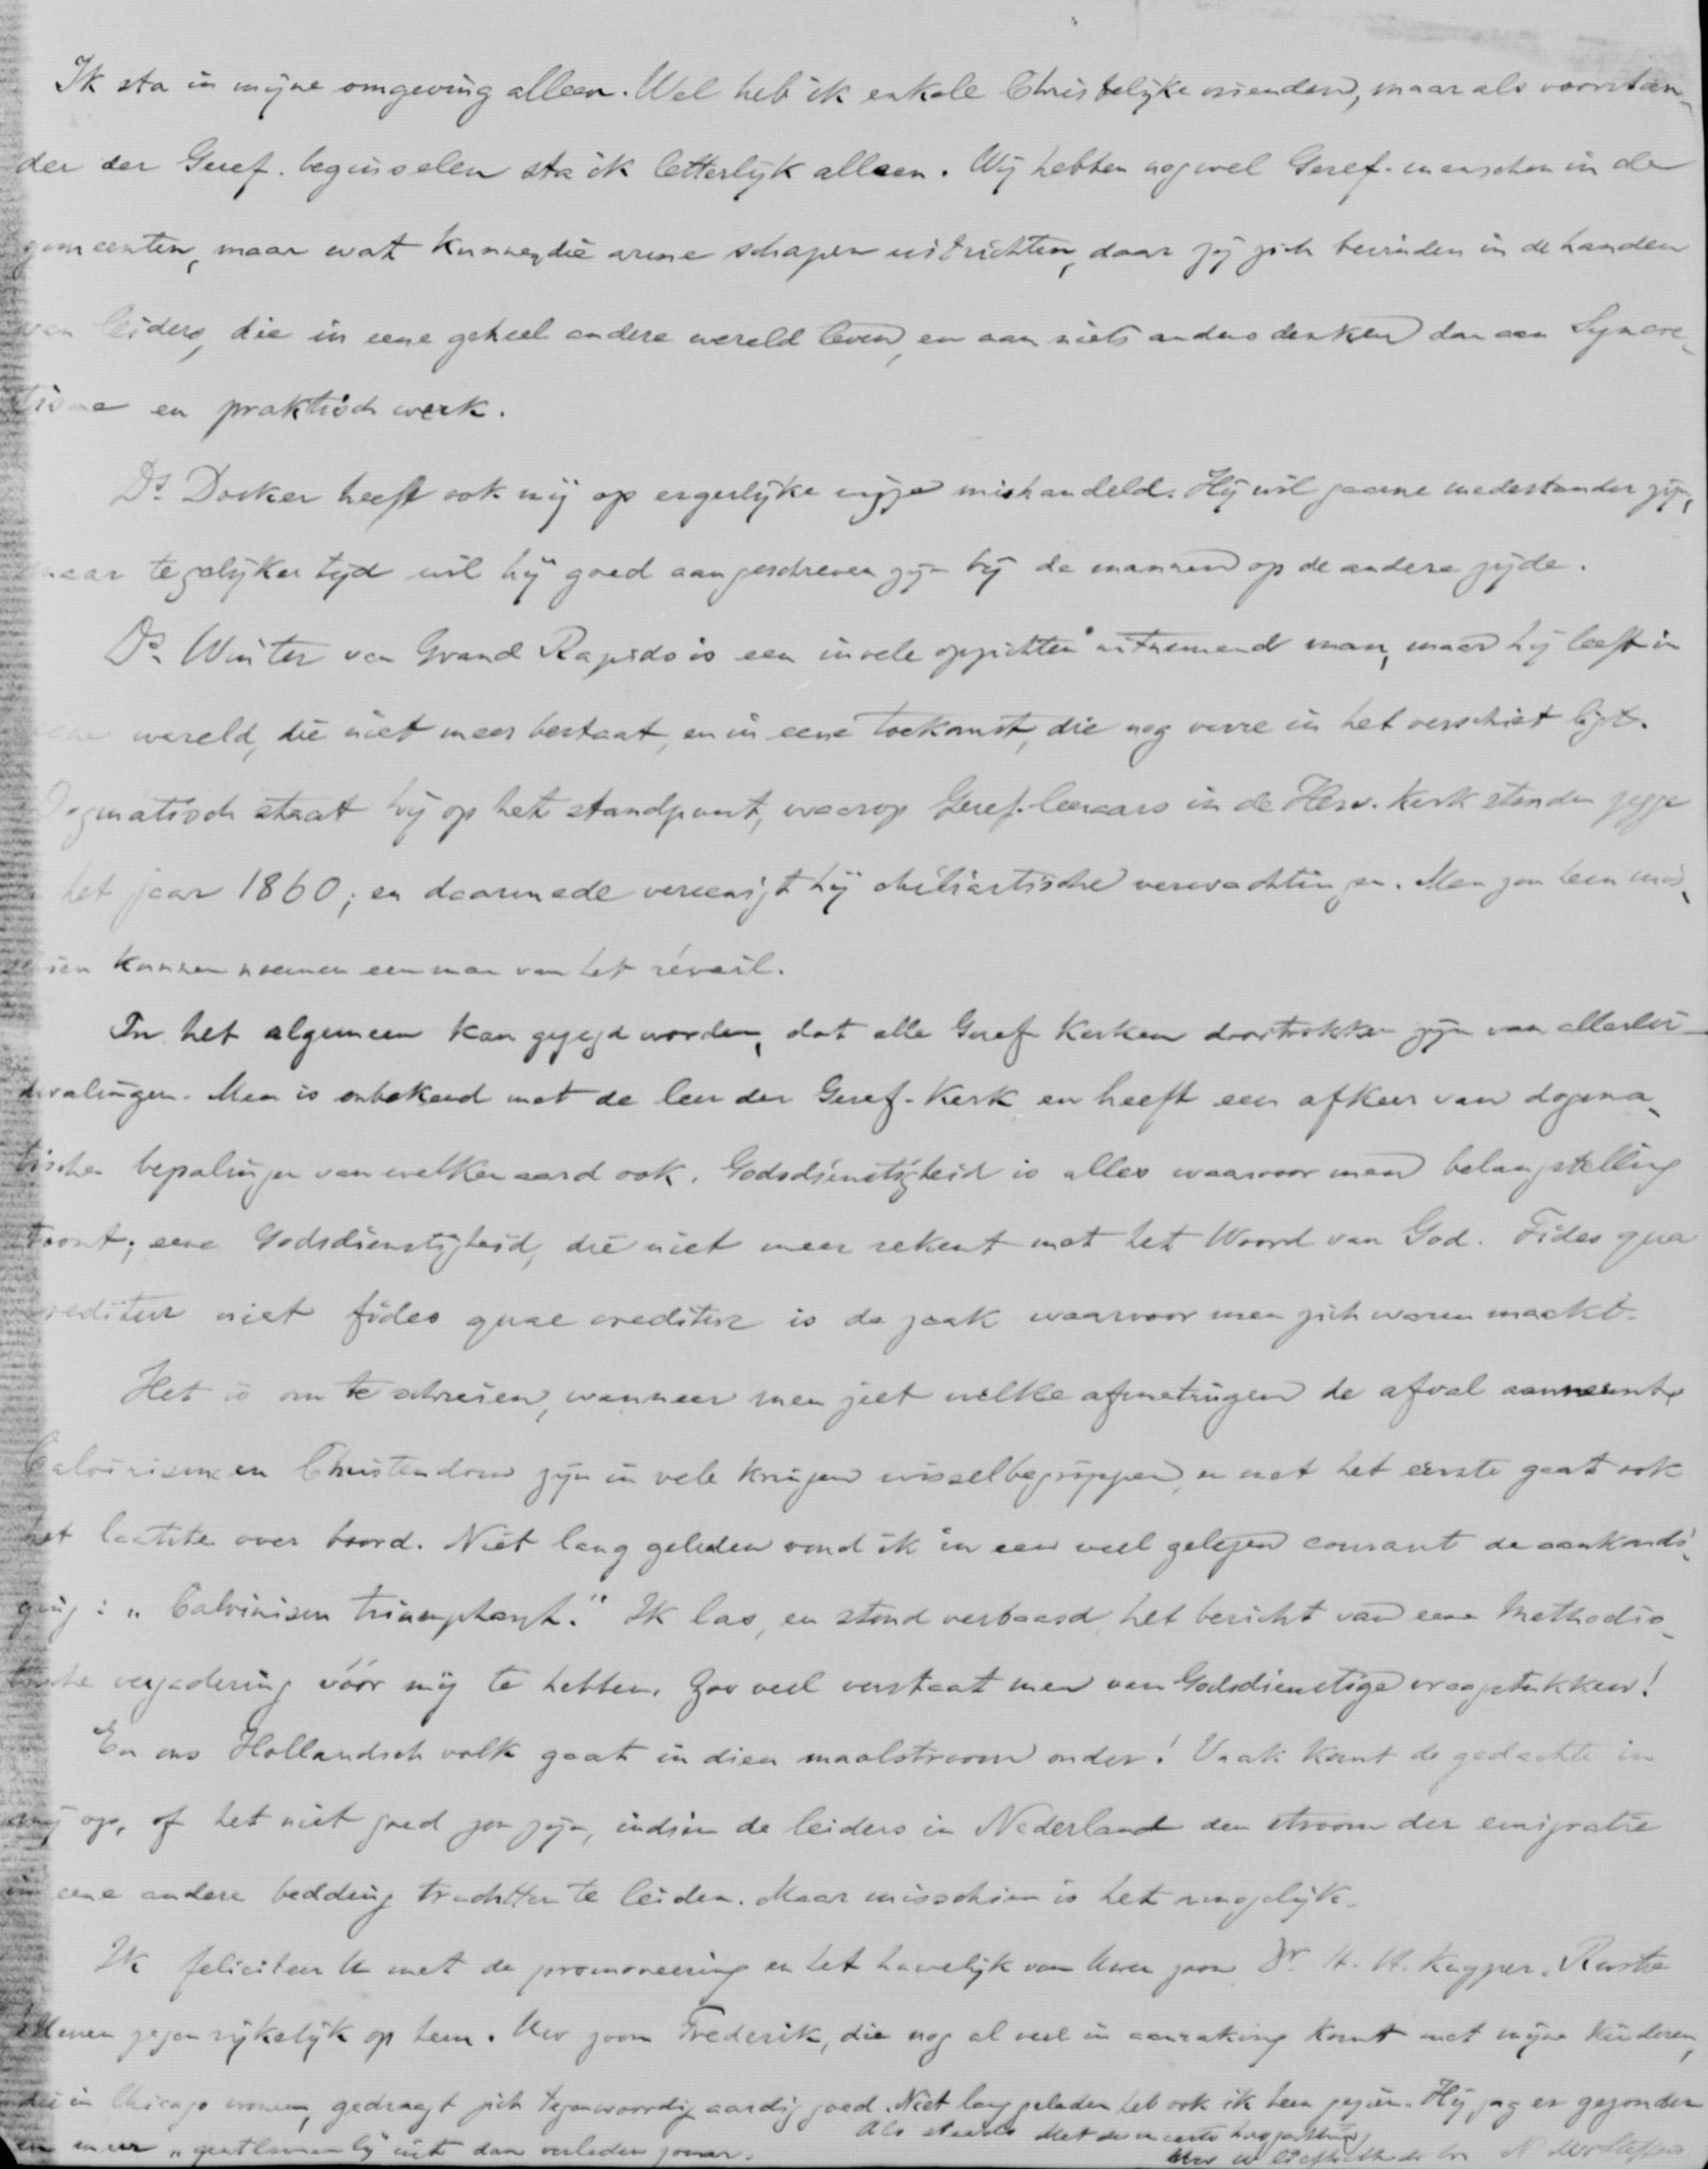 Ik sta in mijne omgeving alleen. Wel heb ik enkele Christelijke vrienden, maar als voorstan-
der der Geref. beginselen sta ik letterlijk alleen. Wij hebben nog wel Geref. menschen in de
gemeenten, maar wat kunnen die arme schapen uitrichten, daar zij zich bevinden in de handen
van leiders, die in eene geheel andere wereld leven, en aan niets anders denken dan aan Syncre-
tisme en praktisch werk.
Ds. Dosker heeft ook mij op ergerlijke wijze mishandeld. Hij wil gaarne medestander zijn,
maar tegelijker tijd wil hij goed aangeschreven zijn bij de mannen op de andere zijde.
Ds. Winter van Grand Rapids is een in vele opzichten uitnemend man, maar hij leeft in
eene wereld, die niet meer bestaat, en in eene toekomst, die nog verre in het verschiet ligt.
Dogmatisch staat hij op het standpunt, waarop Geref. leeraars in de Herv. Kerk stonden zegge
het jaar 1860; en daarmede vereenigt hij chiliastische verwachtingen. Men zou hem mis-
schien kunnen noemen een man van het réveil.
In het algemeen kan gezegd worden, dat alle Geref Kerken doortrokken zijn van allerlei
dwalingen. Men is onbekend met de leer der Geref. Kerk en heeft een afkeer van dogma-
tische bepalingen van welken aard ook. Godsdienstigheid is alles waarvoor men belangstelling
toont; eene Godsdienstigheid, die niet meer rekent met het Woord van God. Fides qua
creditur niet fides quae creditur is de zaak waarvoor men zich warm maakt.
Het is om te schreien, wanneer men ziet welke afmetingen de afval aanneemt.
Calvinisme en Christendom zijn in vele kringen wisselbegrippen, en met het eerste gaat ook
het laatste over boord. Niet lang geleden vond ik in een veel gelezen courant de aankondi-
ging: „Calvinism triumphant." Ik las, en stond verbaasd, het bericht van eene Methodis-
tische vergadering vóór mij te hebben. Zoo veel verstaat men van Godsdienstige vraagstukken!
En ons Hollandsch volk gaat in dien maalstroom onder! Vaak komt de gedachte in
mij op, of het niet goed zou zijn, indien de leiders in Nederland den stroom der emigratie
in eene andere bedding trachtten te leiden. Maar misschien is het onmogelijk.
Ik feliciteer U met de promoveering en het huwelijk van Uwen zoon Dr. H. H. Kuyper. Ruste
zegen rijkelijk op hem. Uw zoon Frederik, die nog al veel in aanraking komt met mijne kinderen,
die in Chicago wonen, gedraagt zich tegenwoordig aardig goed. Niet lang geleden heb ook ik hem gezien. Hij zag er gezonder
en meer „gentlemanly" uit dan verleden zomer.
Als steeds Met de meeste hoogachting
Uw